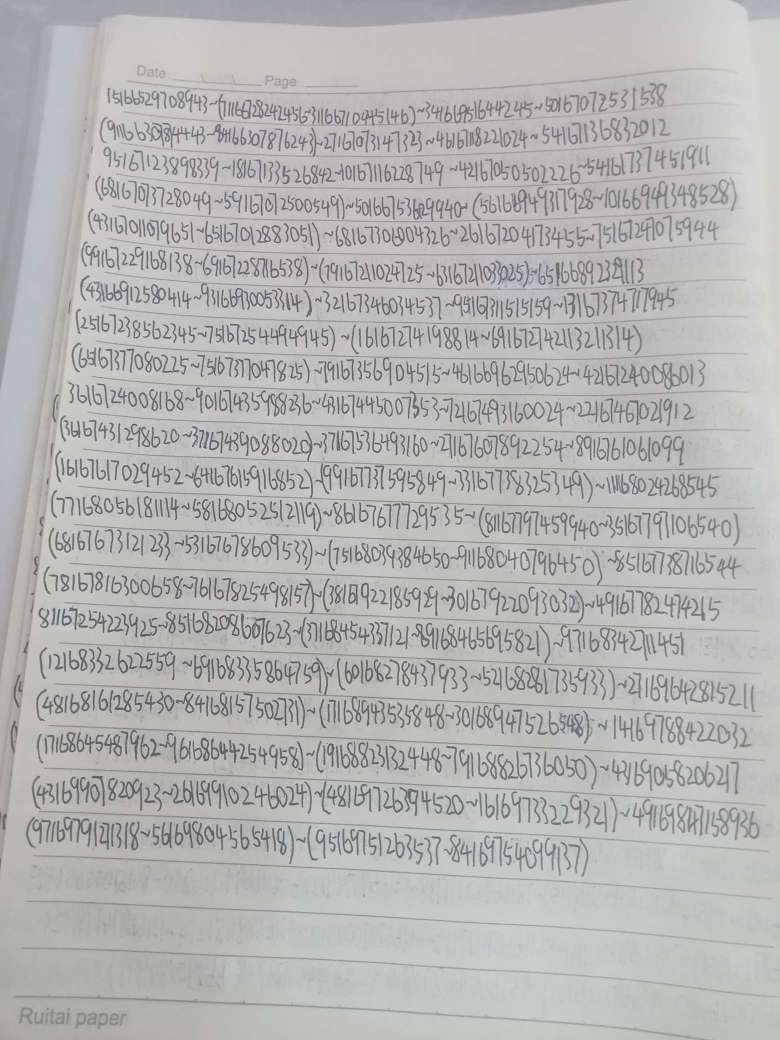 Date Page
15166529708943~(71116672824245б~31166710945146)~34166951644245~50167072531538
(91166307844443~84166307876243)~27167073147323~46167118221024~54167136832012
95167123898339~18167133526842~10167116228749~42167050502226~54167737451911
(68167073728049~59167072500549)~50166753629940~(56166949317928~10166949348528)
(43167011079651~65167012883051)~68167306004326~26167204173455~75167247075944
(99167229168138~69167228716538)~(79167211024725~63167211033025)~65166892329113
(43166912580414~93166930053314)~32167346034537~95167311515159~13167374717945
(25167238562345~75167254494945)~(16167274198814~69167274211321314)
(65167377080225~75167377047825)~79167356904515~46166962950624~42167240086013
3616724008168~90167435988236~43167445007353~72167493160024~22167467021912
(36167431298620~37167439088020)~37167536493160~27167607892254~8916761061099
(16167617029452~64167615916852)~(99167737595849~73167738325349)~11168024268545
(77168056181114~58168052512119)~86167677729535~(81167797459940~35167797106540)
(68167673121233~53167678609533)~(75168039384650~91168040796450)~85167738716544
(78167816300658~76167825498157)~(38167922185929~30167922093032)~49167782474265
81167254223925~85168208607623~(37168454337121~89168465695821)~97168342711451
(12168332622559~69168335864759)~(60168278437933~52168281735933)~27169642815211
(48168161285430~84168157502731)~(17168943535848~30168947526548)~14169788422032
(17168645487962~96168644254958)~(19168823132448~79168826736050)~44169058206217
(43169907820923~26169910246024)~(48169726394520~16169733229321)~49169847158936
(97169791271318~56169804565418)~(95169751263537~84169754099137)
Ruitai paper